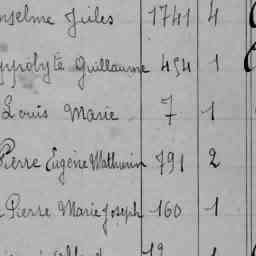 Jules 1741 4
Guillaume 454 1
Louis Marie 7 1
Pierre Eugène Mathurin 791 2
Pierre Marie Joseph 160 1